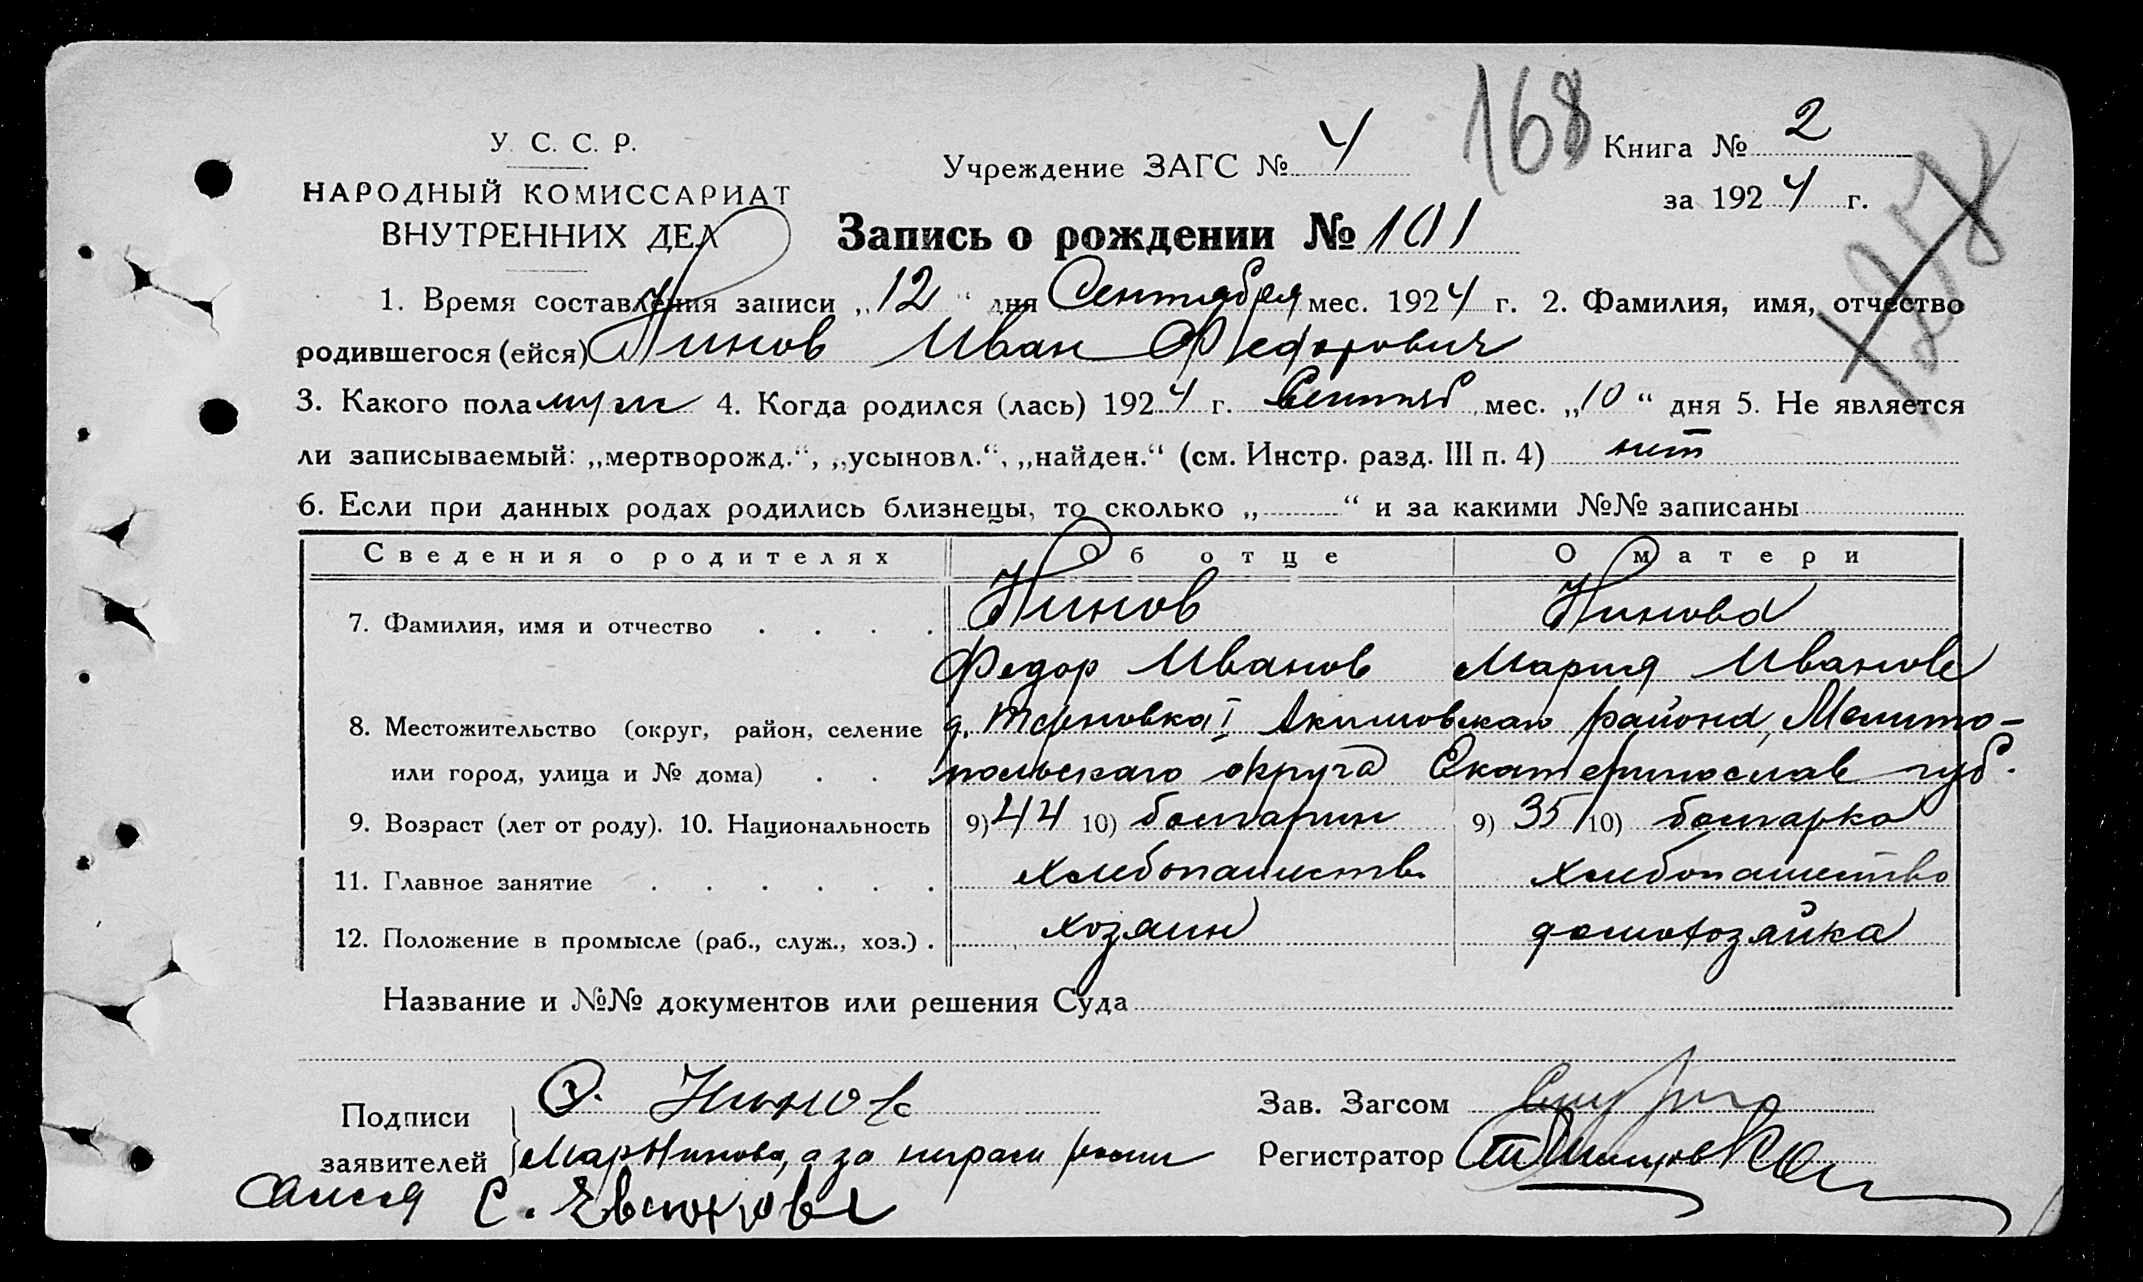 168
У. С. С. Р.
НАРОДНЫЙ КОМИССАРИАТ
ВНУТРЕННИХ ДЕЛ
Учреждение ЗАГС № 4
Книга № 2
за 1924 г.
Запись о рождении № 101
1. Время составления записи „12“ дня Сентября мес. 1924 г. 2. Фамилия, имя, отчество
родившегося (ейся) Нинов Иван Федорович
3. Какого пола муж 4. Когда родился (лась) 1924 г. Сентяб мес. „10“ дня 5. Не является
ли записываемый: „мертворожд.“, „усыновл.“, „найден.“ (см. Инстр. разд. III п. 4) нет
6. Если при данных родах родились близнецы, то сколько „ “ и за какими №№ записаны
Сведения о родителях Об отце О матери
7. Фамилия, имя и отчество Нинов Нинова
Федор Иванов Мария Иванов
8. Местожительство (округ, район, селение д. Терновка I Акимовскаго района, Мелито-
или город, улица и № дома) польскаго округа Екатеринослав губ.
9. Возраст (лет от роду). 10. Национальность 9) 44 10) болгарин 9) 35 10) болгарка
11. Главное занятие хлебопашеств хлебопашество
12. Положение в промысле (раб., служ., хоз.) хозяин домохозяйка
Название и №№ документов или решения Суда
Подписи Ф. Нинов Зав. Загсом
заявителей Мар Нинова, а за неграм Регистратор
С.